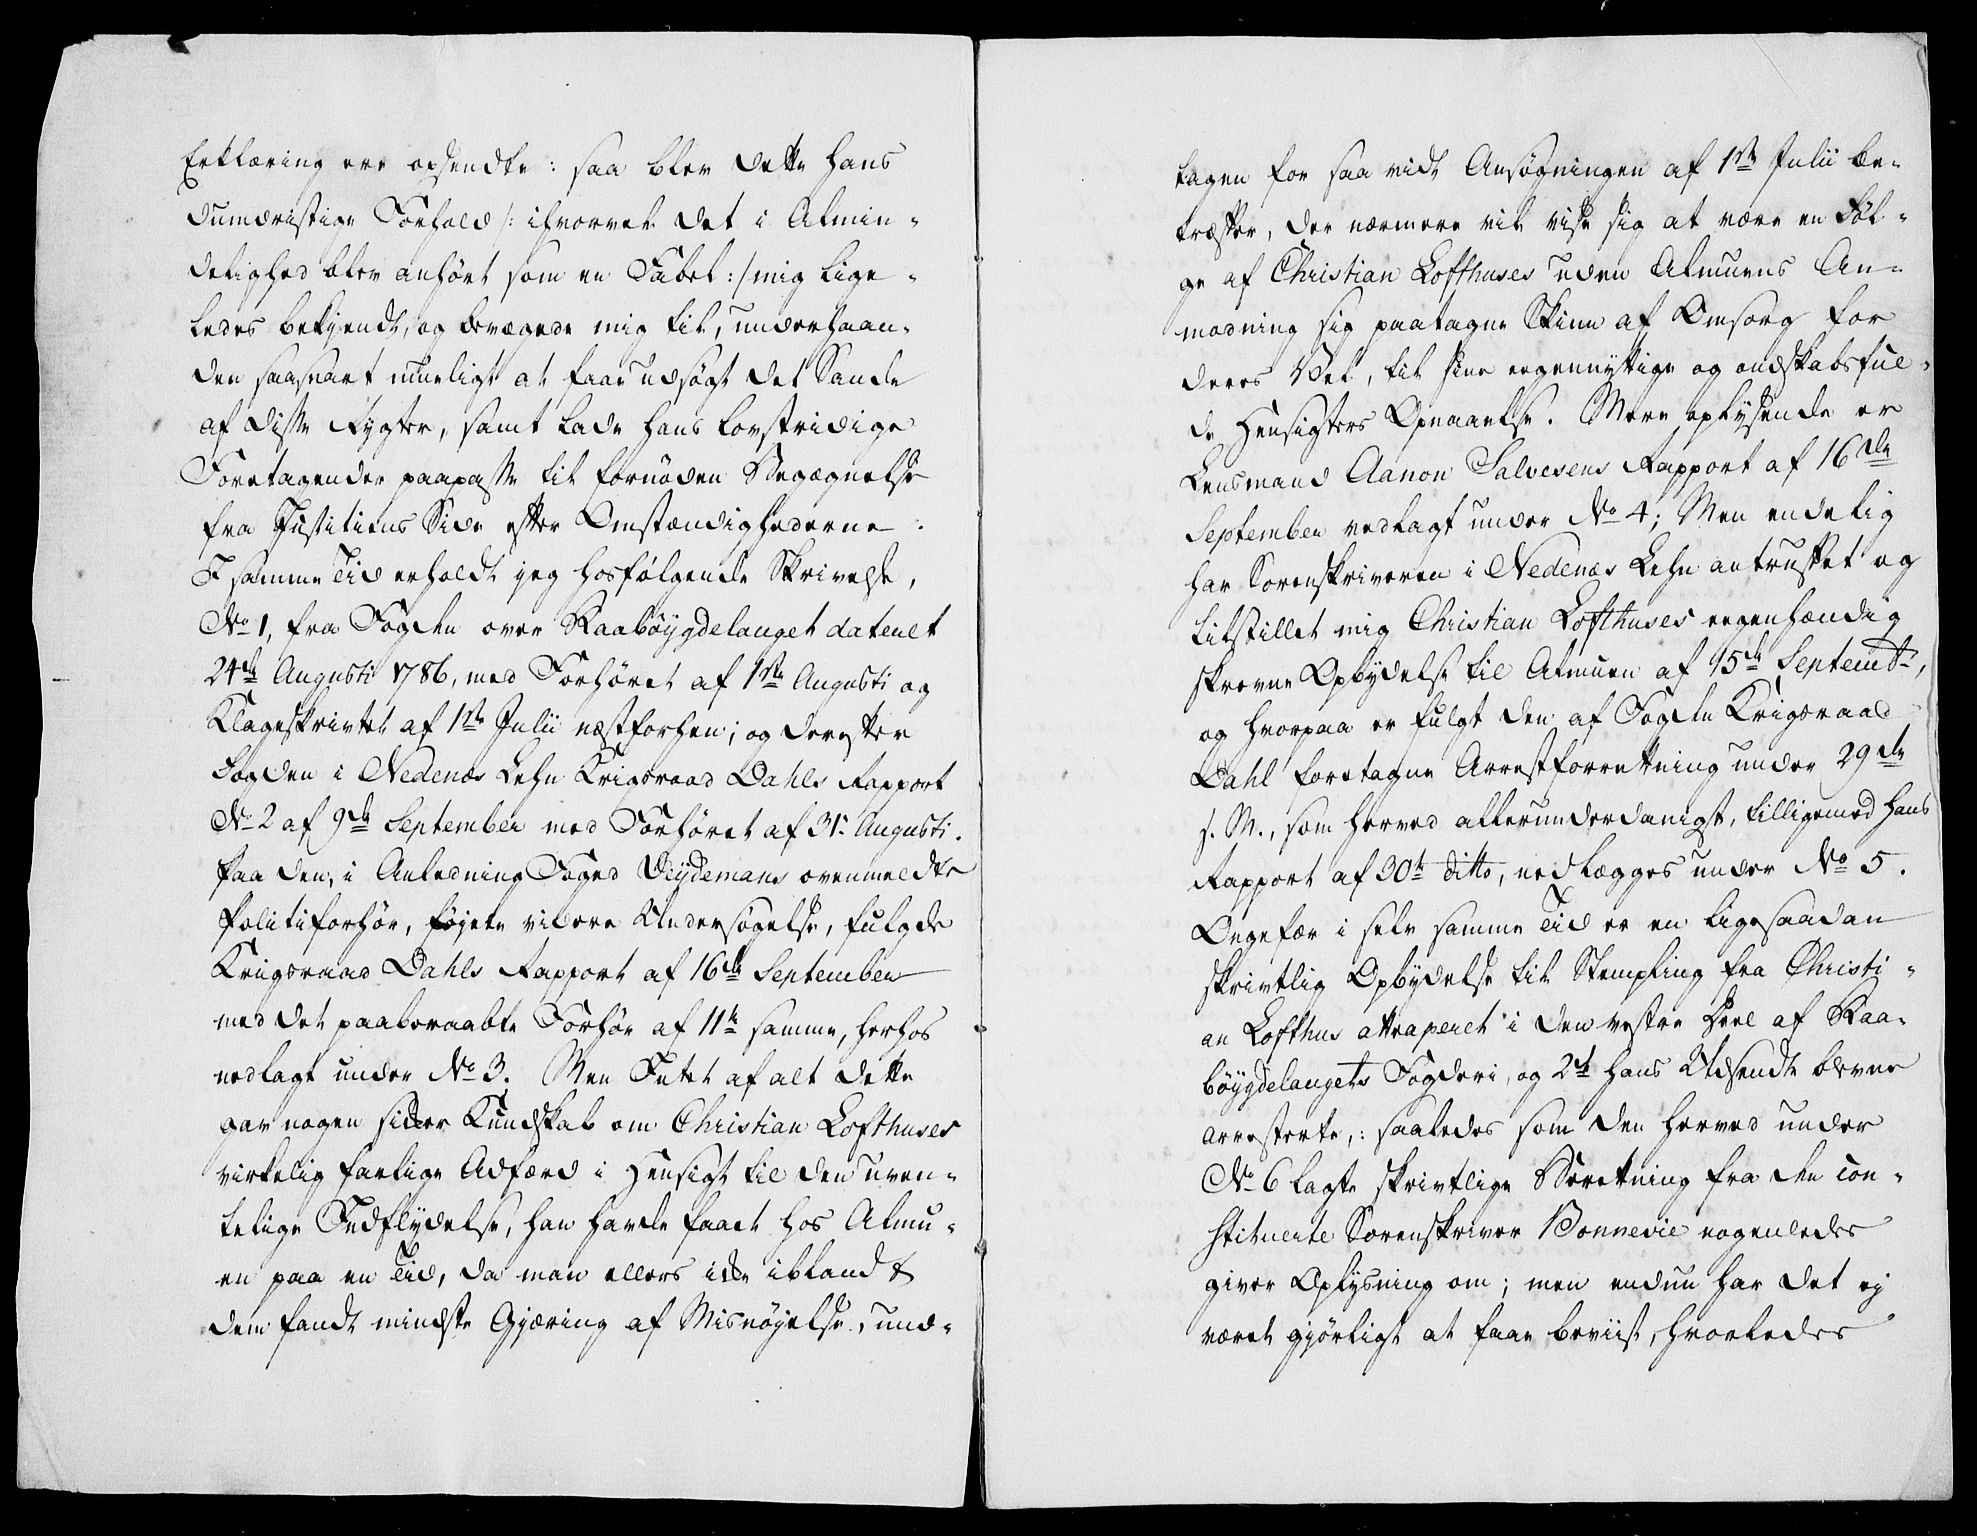 Erklæring ere opsendte: saa blev dette hans
dumdristige Forhold /: ihvorvel det i Almin-
delighed blev anhört som en Fabel :/ mig lige-
ledes bekjendt, og bevægede mig til, underhaan-
den saasnart mueligt at faae udsøgt det Sande
af disse Rygter, samt lade hans lovstridige
Foretagender paapasse til fornöden Begegnelse
fra Justitiens Side efter Omstændighederne.
I samme Tid erholdt jeg hosfölgende Skrivelse,
No 1, fra Fogden over Raabøygdelauget dateret
24de Augusti 1786, med Forhöret af 1ste Augusti og
Klageskrivtet af 1ste Julii næstforhen; og derefter
Fogden i Nedenæs Lehn Krigsraad Dahls Rapport
No 2 af 9de September med Forhöret af 31. Augusti.
Paa den, i Anledning Foged Weydemans ovenmeldte
Politiforhör, föjede videre Undersøgelse, fulgde
Krigsraad Dahls Rapport af 16de September
med det paaberaabte Forhör af 11te samme, herhos
nedlagt under No 3. Men Intet af alt dette
gav nogen sikker Kundskab om Christian Lofthuses
virkelig farlige Adfærd i Hensigt til den uven-
telige Indflydelse, han havde faaet hos Almu-
en paa en Tid, da man ellers ikke iblandt
dem fandt mindste Gjæring af Misnöyelse, und-
tagen for saa vidt Ansøgningen af 1ste Julii be-
træffer, der nærmere vil vise sig at være en Föl-
ge af Christian Lofthuses uden Almuens An-
modning sig paatagne Skin af Omsorg for
deres Vel, til sine egennyttige og ondskabsful-
de Hensigters Opnaaelse. Mere oplysende er
Lensmand Aanon Salvesens Rapport af 16de
September vedlagt under No 4; Men endelig
har Sorenskriveren i Nedenæs Lehn antruffet og
tilstillet mig Christian Lofthuses egenhændig
skrevne Opbydelse til Almuen af 15de Septembr,
og hvorpaa er fulgt den af Fogden Krigsraad
Dahl foretagne Arrestforretning under 29de
s. M., som herved allerunderdanigst, tilligemed hans
Rapport af 30te ditto, nedlægges under No 5.
Ongefær i selv samme Tid er en ligesaadan
skrivtlig Opbydelse til Stempling fra Christi-
an Lofthus attraperet i den vestre Deel af Raa-
böygdelaugets Fogderi, og 2de hans Udsendte bleve
arresterte,: saaledes som den herved under
No 6 lagte skrivtlige Beretning fra den con-
stituerte Sorenskriver Bonnevie nogenledes
giver Oplysning om; men endnu har det ej
været gjörligt at faae beviist, hvorledes